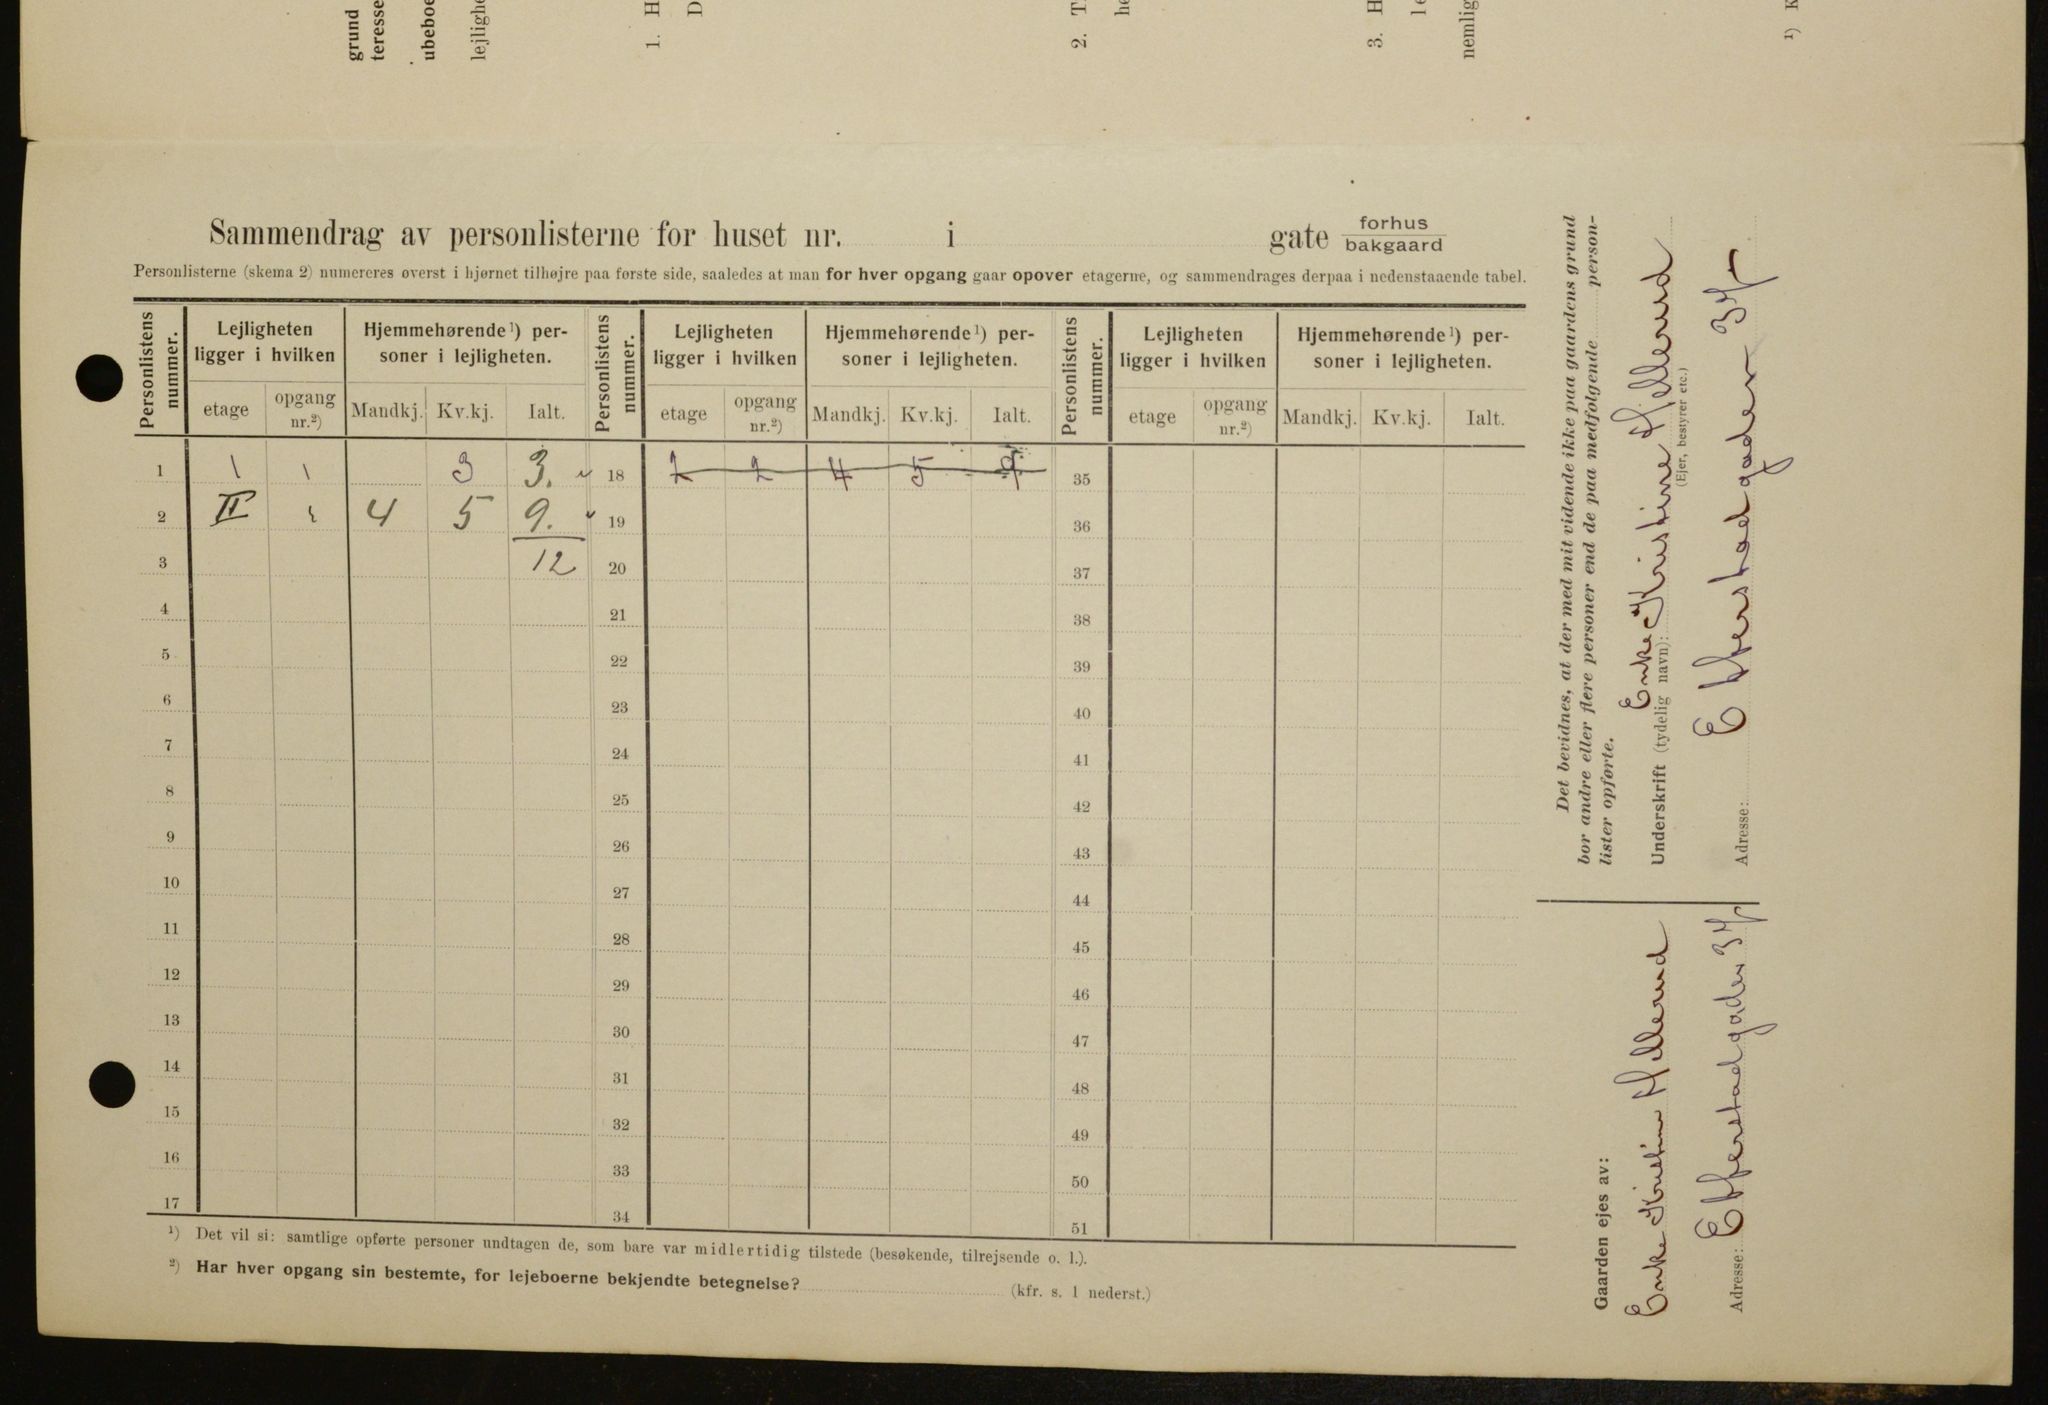 grund
teresse
ubeboe
lejlighe
1. H
D
2. T
he
3. H
le
nemlig
¹) K
Sammendrag av personlisterne for huset nr. i gate forhus
bakgaard
Personlisterne (skema 2) numereres øverst i hjørnet tilhøjre paa første side, saaledes at man for hver opgang gaar opover etagerne, og sammendrages derpaa i nedenstaaende tabel.
Personlistens nummer. Lejligheten ligger i hvilken Hjemmehørende¹) personer i lejligheten. Personlistens nummer. Lejligheten ligger i hvilken Hjemmehørende¹) personer i lejligheten. Personlistens nummer. Lejligheten ligger i hvilken Hjemmehørende¹) personer i lejligheten.
etage opgang nr.²) Mandkj. Kv.kj. Ialt. etage opgang nr.²) Mandkj. Kv.kj. Ialt. etage opgang nr.²) Mandkj. Kv.kj. Ialt.
1 1 1 3 3. 18 2 2 4 5 9 35
2 II 4 5 9. 19 36
3 12 20 37
4 21 38
5 22 39
6 23 40
7 24 41
8 25 42
9 26 43
10 27 44
11 28 45
12 29 46
13 30 47
14 31 48
15 32 49
16 33 50
17 34 51
¹) Det vil si: samtlige opførte personer undtagen de, som bare var midlertidig tilstede (besøkende, tilrejsende o. l.).
²) Har hver opgang sin bestemte, for lejeboerne bekjendte betegnelse? (kfr. s. 1 nederst.)
Det bevidnes, at der med mit vidende ikke paa gaardens grund
bor andre eller flere personer end de paa medfølgende person-
lister opførte.
Enke Kristine Hellerud
Underskrift (tydelig navn):
(Ejer, bestyrer etc.)
Adresse: Efterstadgaden 37
Gaarden ejes av:
Enke Kristine Hellerud
Adresse: Efterstadgaden 37